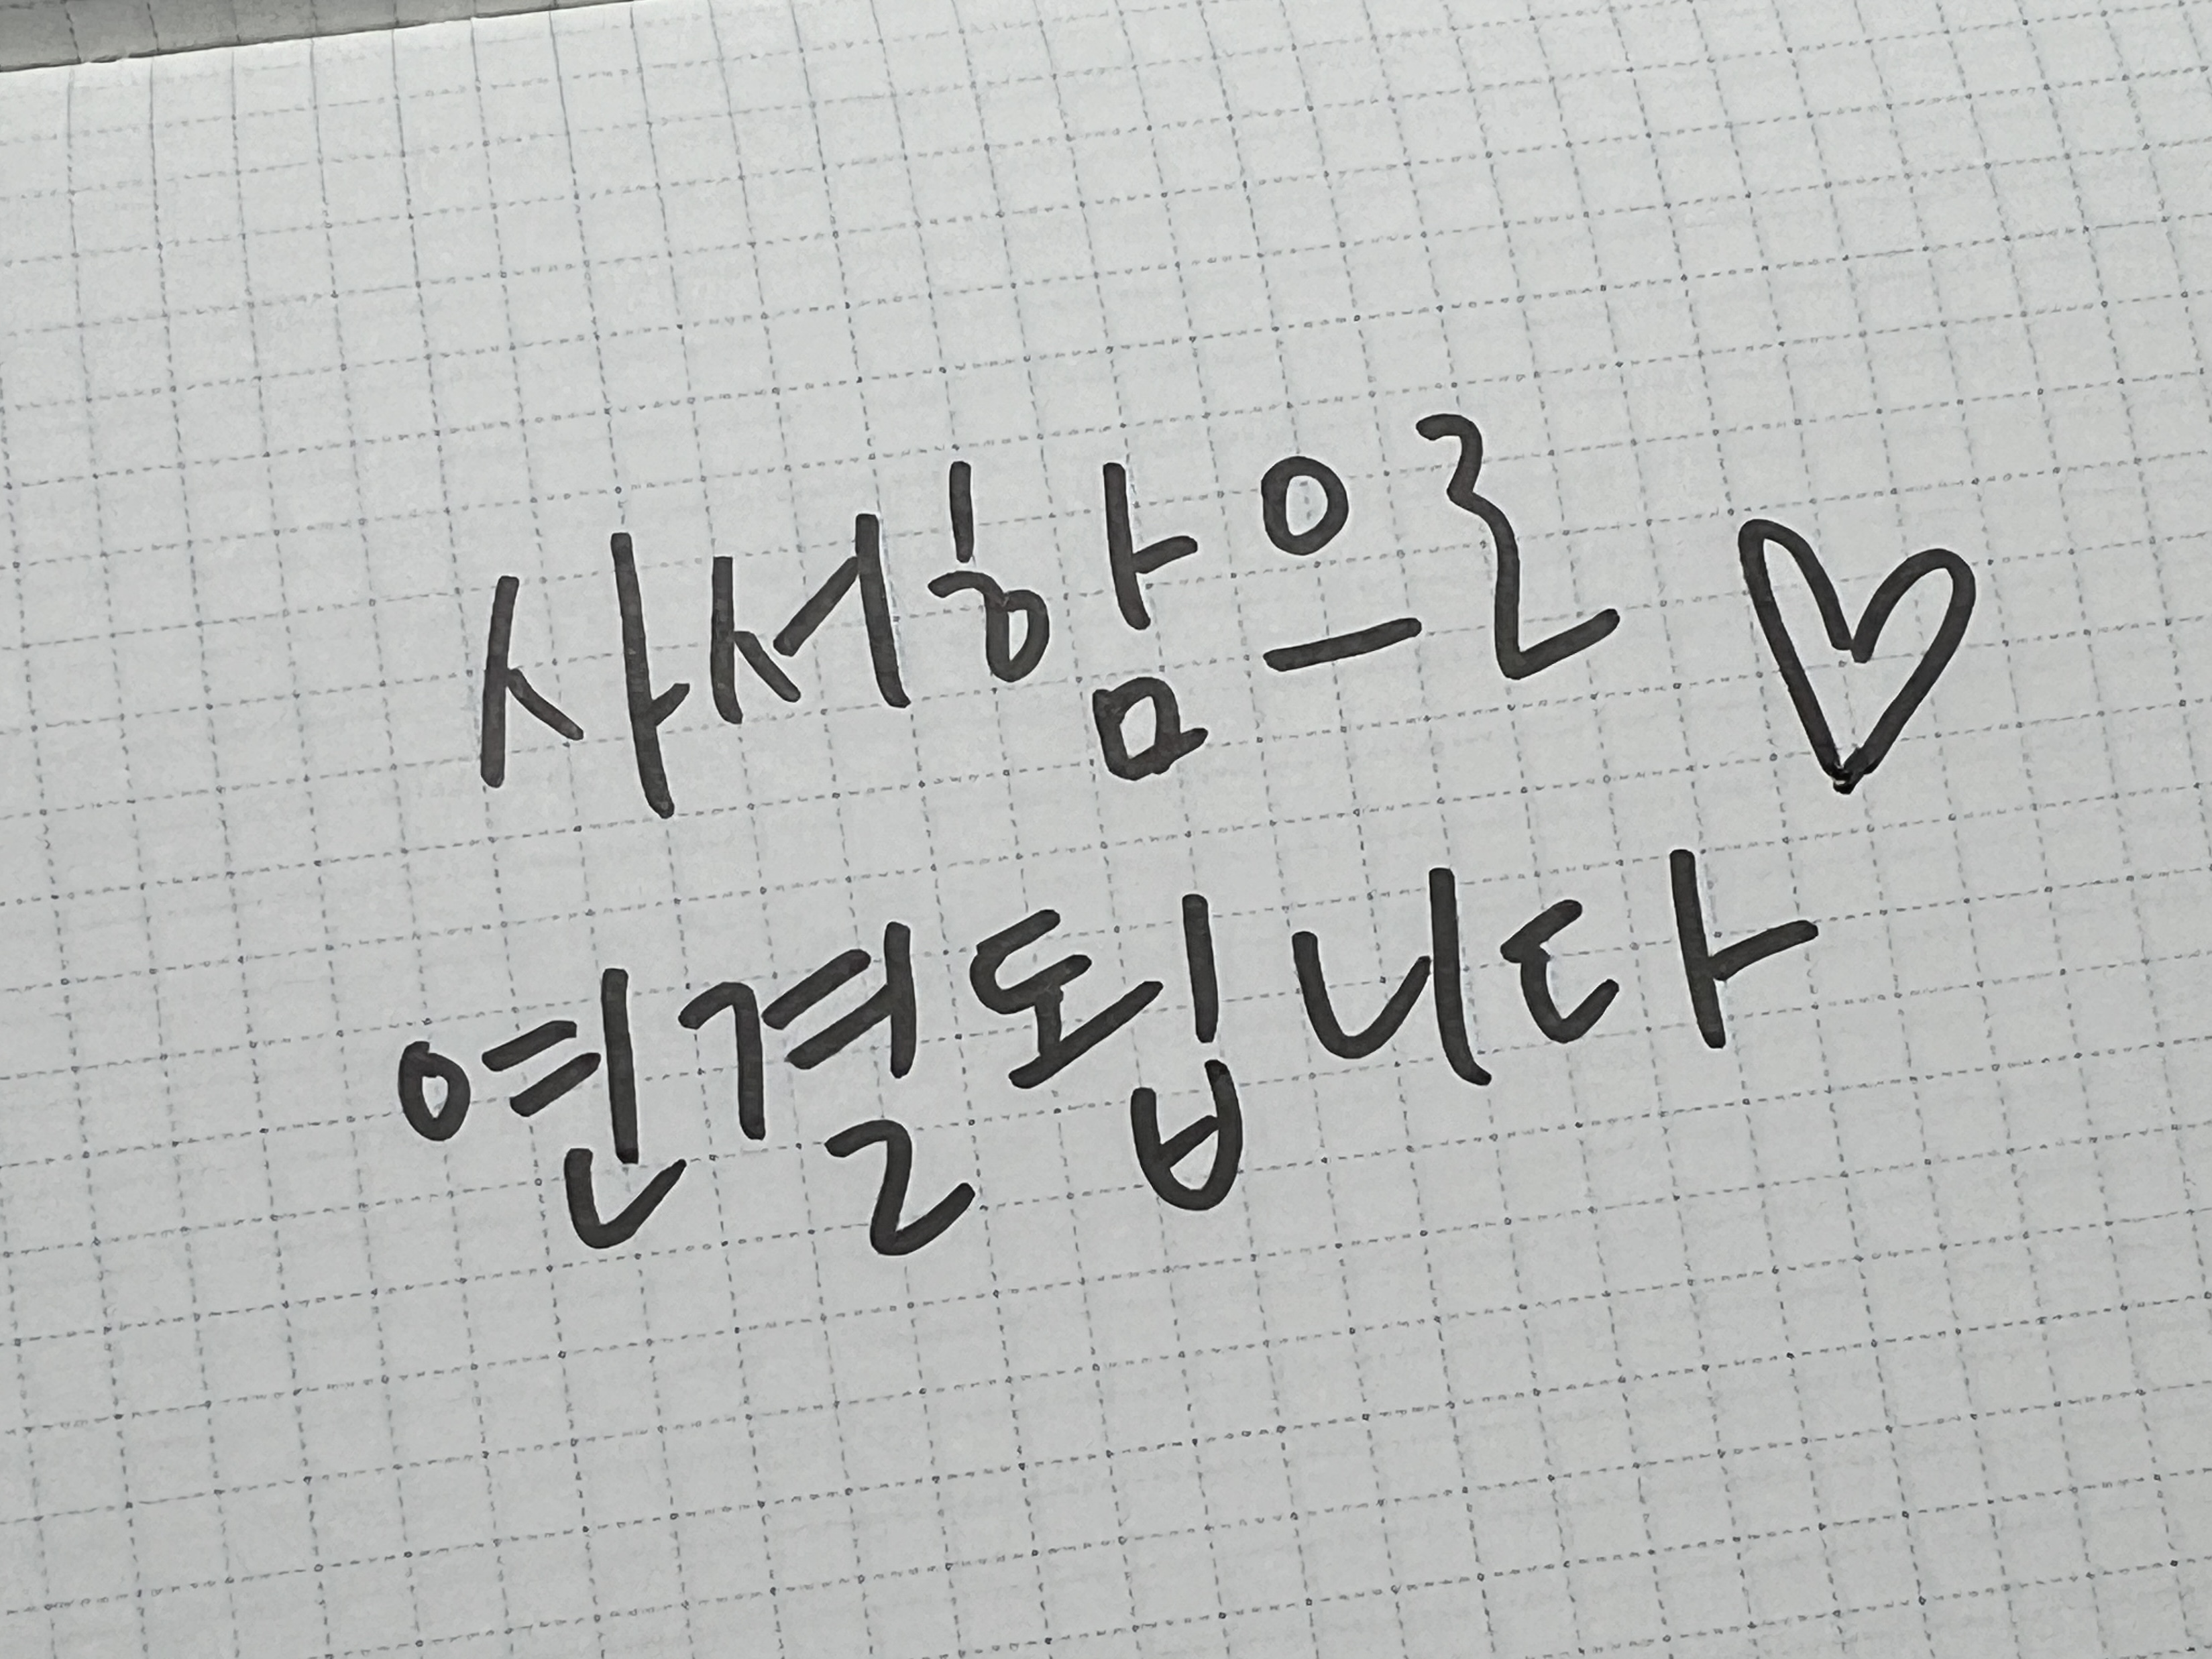 사서함으로 ♡
연결됩니다